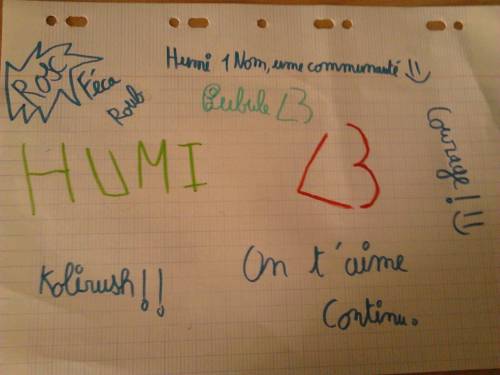 Rox
Féca
Roub
Humi 1 Nom, une communauté !!
Eubule <3
HUMI <3
Courage ! !!
Kolirush !!
On t'aime
Continu.